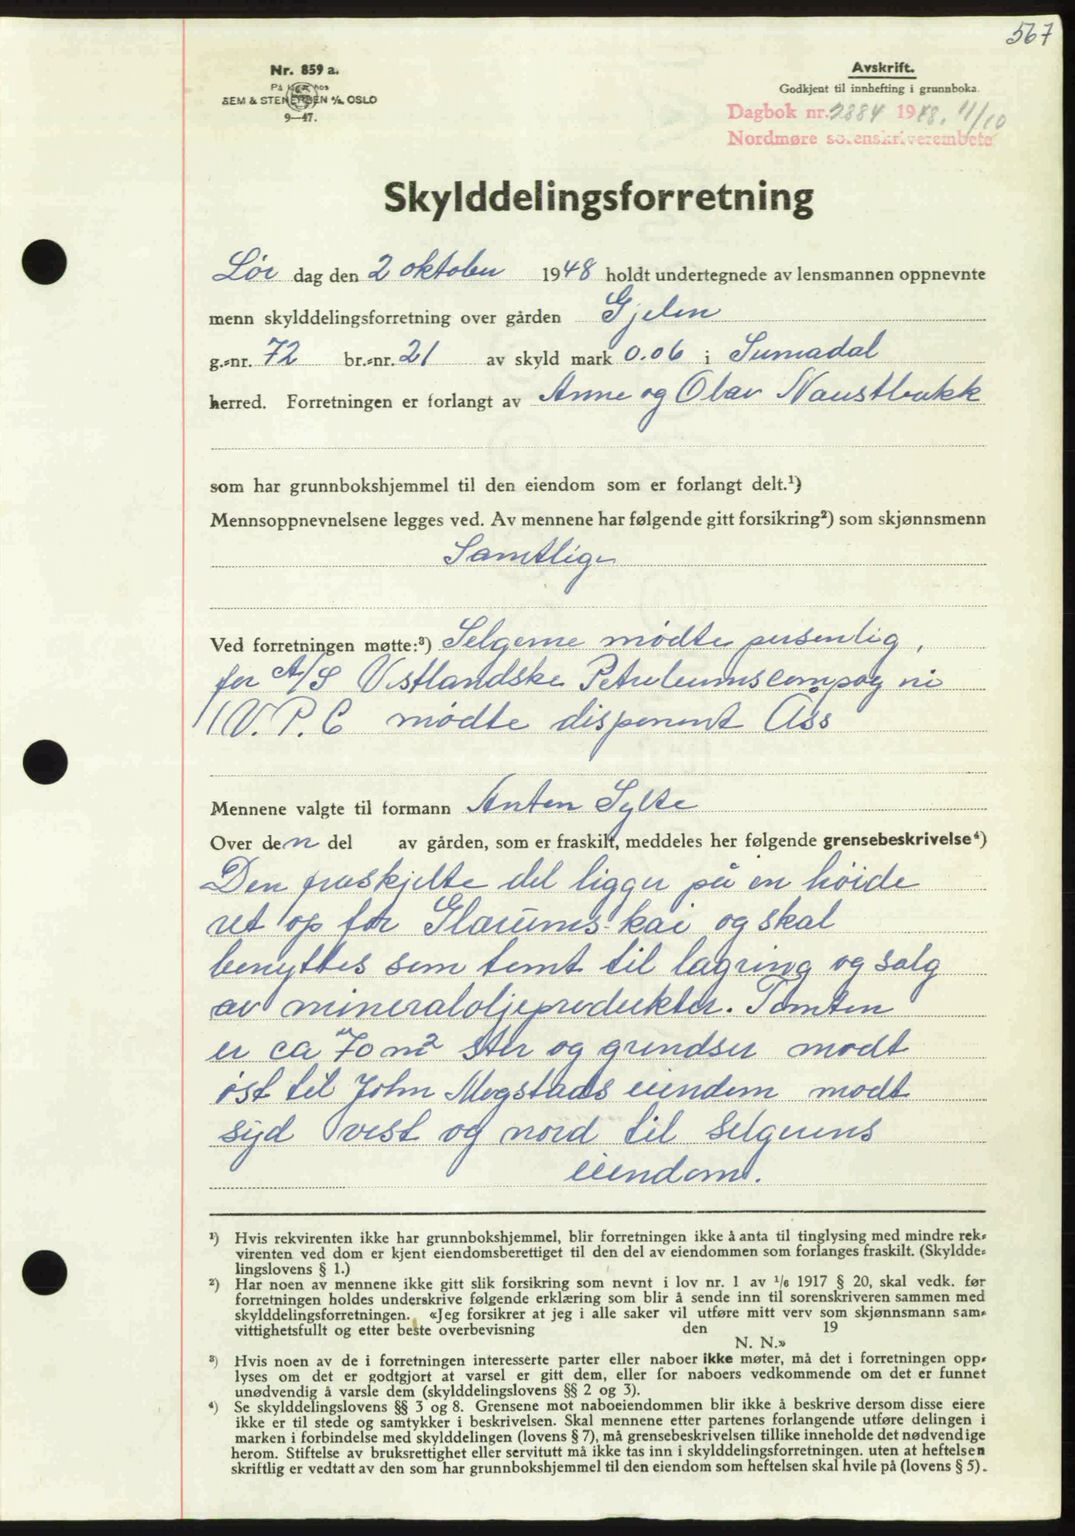 567
Nr. 859 a.
På lager hos
SEM & STENERSEN A/S OSLO
9—47.
Avskrift.
Godkjent til innhefting i grunnboka.
Dagbok nr. 2884 1948. 11/10
Nordmøre sorenskriverembete
Skylddelingsforretning
Lør dag den 2 oktober 1948 holdt undertegnede av lensmannen oppnevnte
menn skylddelingsforretning over gården Gjelen
g.-nr. 72 br.-nr. 21 av skyld mark 0.06 i Surnadal
herred. Forretningen er forlangt av Anne og Olav Naustbakk
som har grunnbokshjemmel til den eiendom som er forlangt delt.¹)
Mennsoppnevnelsene legges ved. Av mennene har følgende gitt forsikring²) som skjønnsmenn
Samtlige
Ved forretningen møtte:³) Selgerne mødte personlig,
for A/S Vestlandske Petroleumscompagni
/V.P.C mødte disponent Ass
Mennene valgte til formann Anton Sylte
Over den del av gården, som er fraskilt, meddeles her følgende grensebeskrivelse⁴)
Den fraskjelte del ligger på en høide
ret op for Glærums kai og skal
benyttes som tomt til lagring og salg
av mineraloljeprodukter. Tomten
er ca 70 m² stor og grendser modt
øst til John Mogstads eiendom modt
syd vest og nord til selgerens
eiendom.
¹) Hvis rekvirenten ikke har grunnbokshjemmel, blir forretningen ikke å anta til tinglysing med mindre rek-
virenten ved dom er kjent eiendomsberettiget til den del av eiendommen som forlanges fraskilt. (Skyldde-
lingslovens § 1.)
²) Har noen av mennene ikke gitt slik forsikring som nevnt i lov nr. 1 av 1/6 1917 § 20, skal vedk. før
forretningen holdes underskrive følgende erklæring som blir å sende inn til sorenskriveren sammen med
skylddelingsforretningen. «Jeg forsikrer at jeg i alle saker vil utføre mitt verv som skjønnsmann sam-
vittighetsfullt og etter beste overbevisning den 19
N. N.»
³) Hvis noen av de i forretningen interesserte parter eller naboer ikke møter, må det i forretningen opp-
lyses om det er godtgjort at varsel er gitt dem, eller for naboers vedkommende om det er funnet
unødvendig å varsle dem (skylddelingslovens §§ 2 og 3).
⁴) Se skylddelingslovens §§ 3 og 8. Grensene mot naboeiendommen blir ikke å beskrive dersom disse eiere
ikke er til stede og samtykker i beskrivelsen. Skal mennene etter partenes forlangende utføre delingen i
marken i forbindelse med skylddelingen (lovens § 7), må grensebeskrivelsen tillike inneholde det nødvendige
herom. Stiftelse av bruksrettighet eller servitutt må ikke tas inn i skylddelingsforretningen. uten at heftelsen
skriftlig er vedtatt av den som har grunnbokshjemmel til den eiendom som heftelsen skal hvile på (lovens § 5).